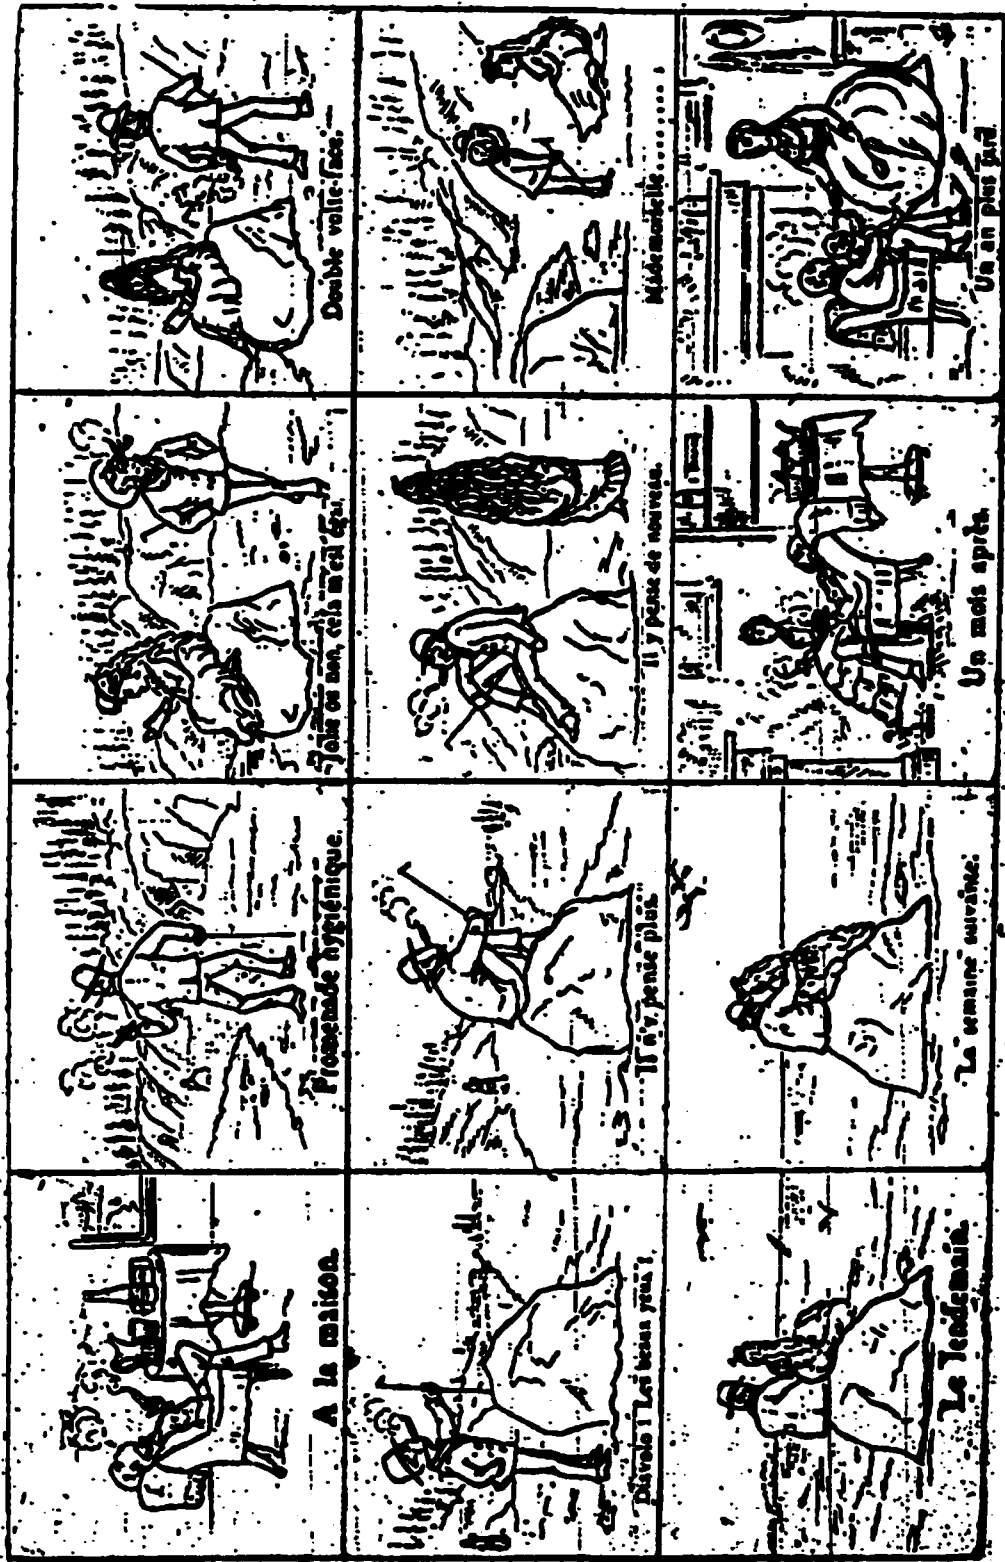 A la maison.
Promenade hygiénique.
Jolie ou non, cela m'est égal.
Double volte-face.
Diavolo ! Les beaux yeux !
Il n'y pense plus.
Il y pense de nouveau.
Mademoiselle........!
Le lendemain.
La semaine suivante.
Un mois après.
Un an plus tard.